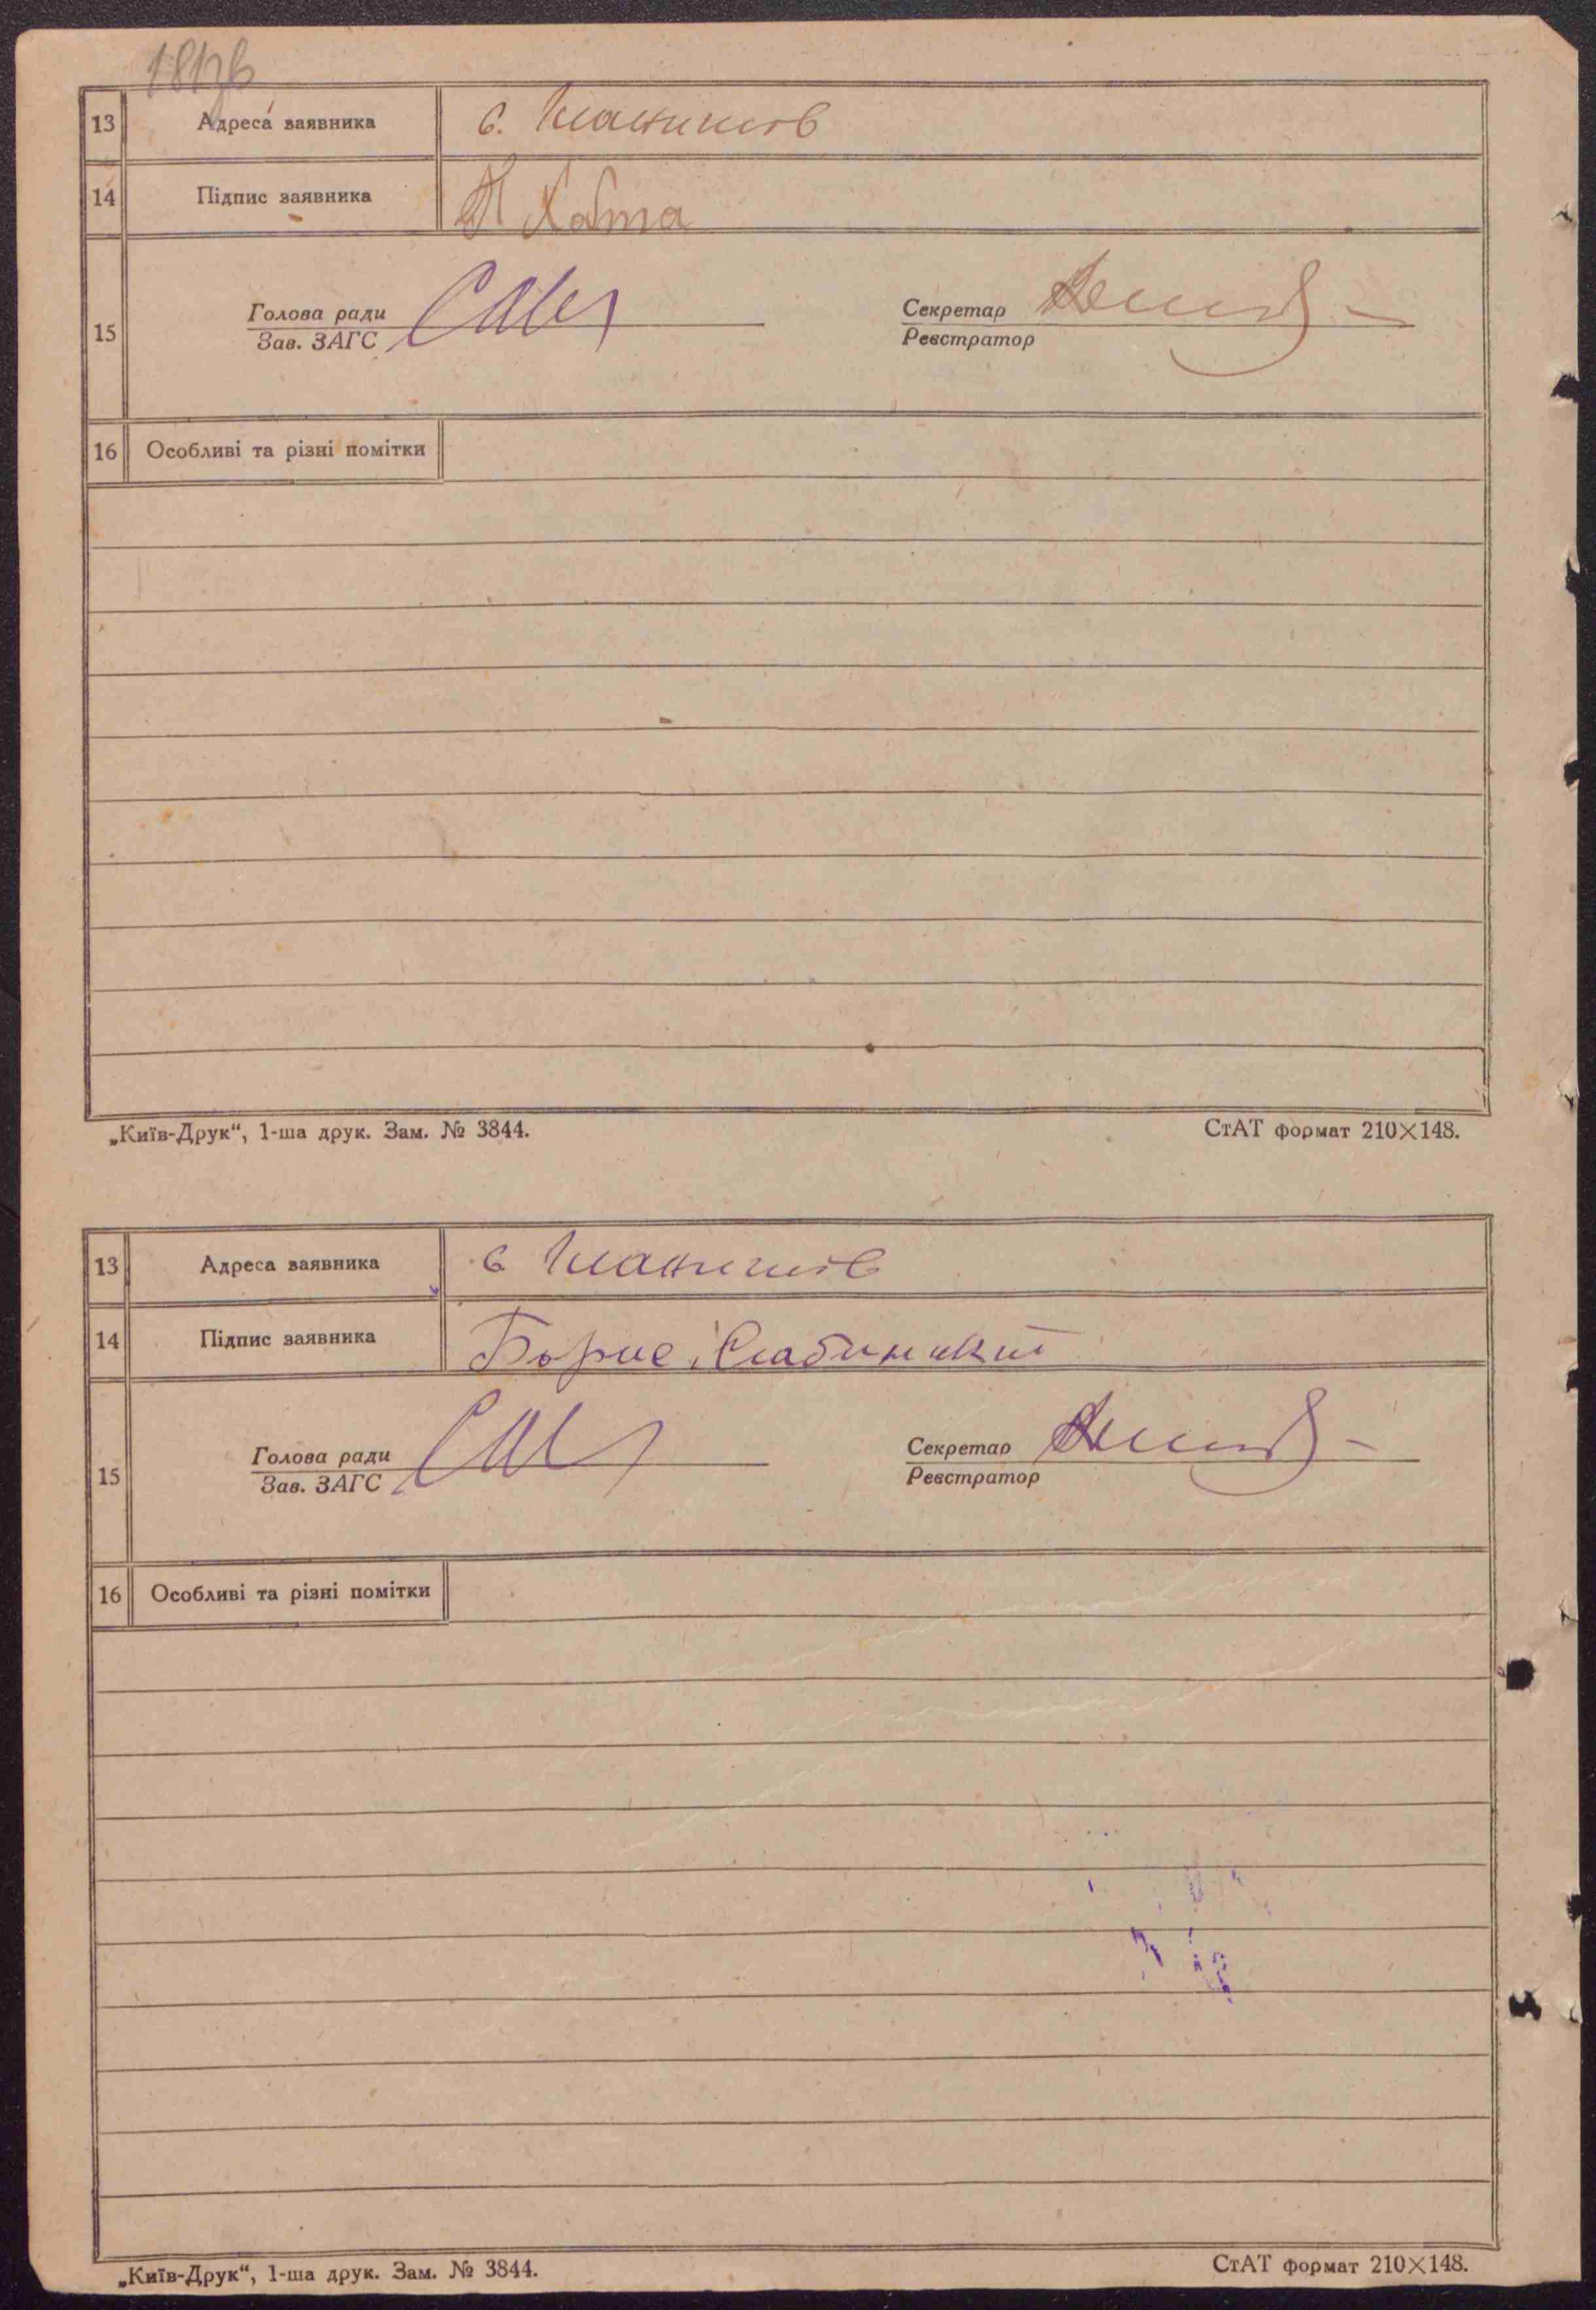 13 Адреса заявника с.
14 Підпис заявника П Хабта
Голова ради Секретар
15
Зав. ЗАГС Реєстратор
16 Особливі та різні помітки
„Київ-Друк“, 1-ша друк. Зам. № 3844. СтАТ формат 210×148.
13 Адреса заявника с
14 Підпис заявника Борис Слабинский
Голова ради Секретар
15
Зав. ЗАГС Реєстратор
16 Особливі та різні помітки
„Київ-Друк“, 1-ша друк. Зам. № 3844. СтАТ формат 210×148.